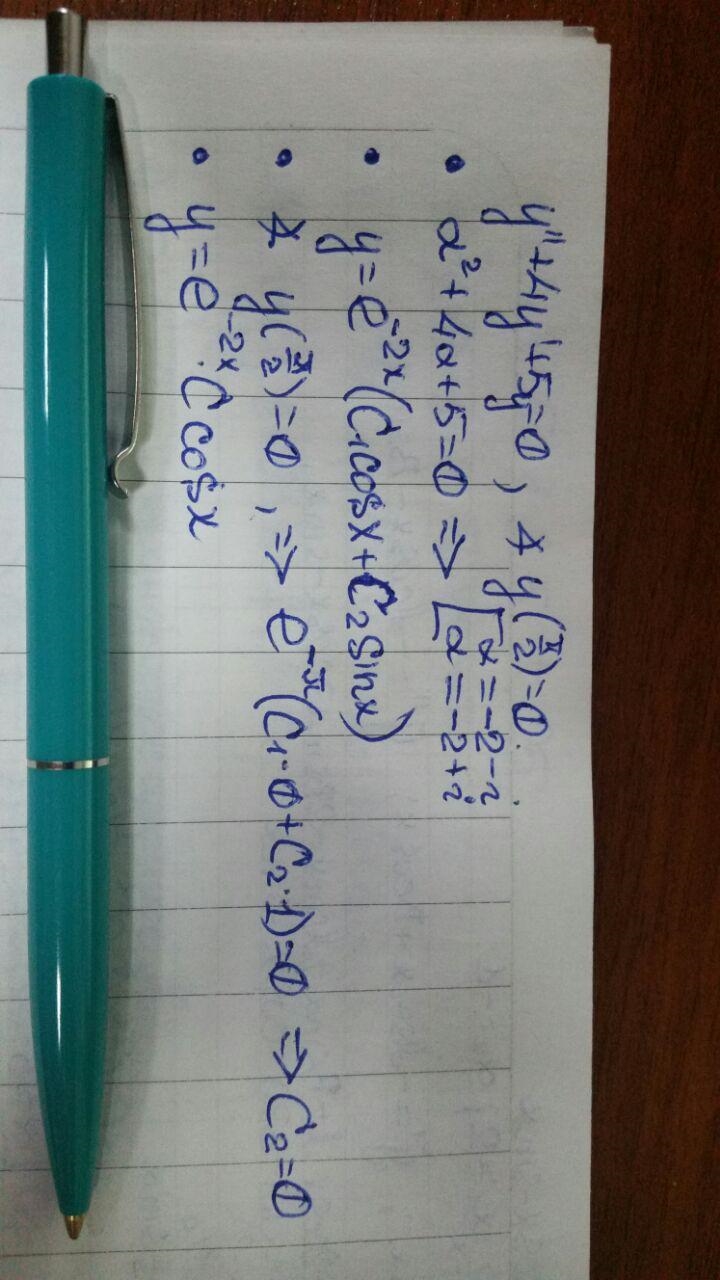 y''+4y'+5y=0, ∧ y(π/2)=0.
• α²+4α+5=0 ⇒ [α=-2-i
α=-2+i
• y=e^{-2x}(C₁cosx+C₂sinx)
• ∧ y(π/2)=0, ⇒ e^{-π}(C₁·0+C₂·1)=0 ⇒ C₂=0
• y=e^{-2x}·C cosx